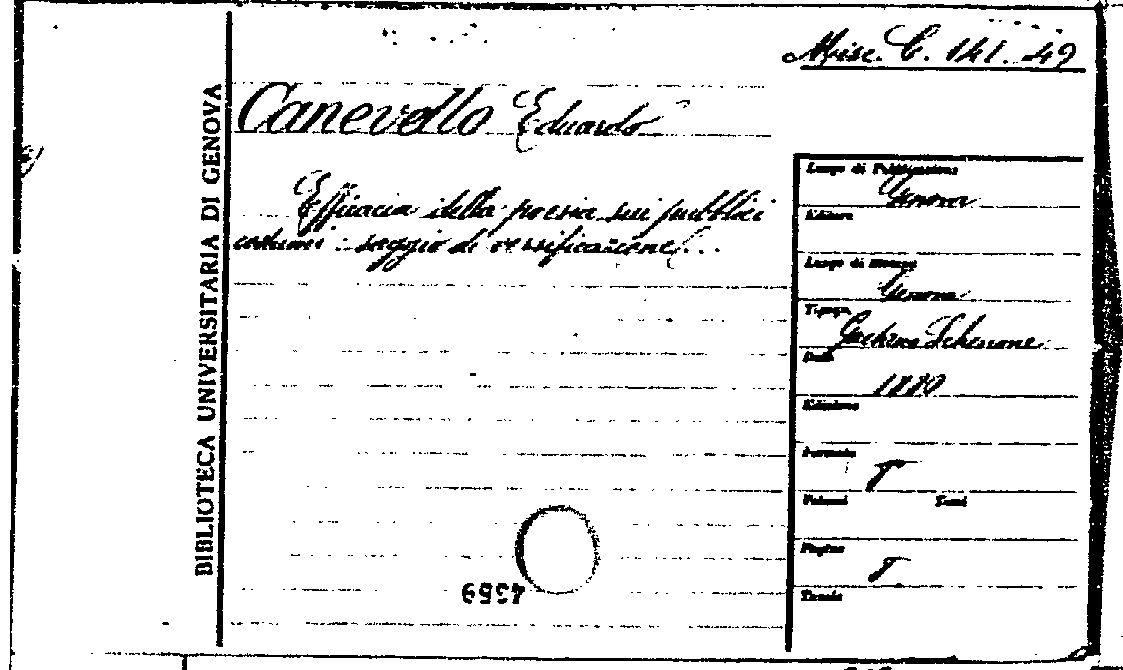 Misc. C. 141. 49
Canevello Eduardo
Efficacia della poesia sui pubblici
costumi : saggio di versificazione...
BIBLIOTECA UNIVERSITARIA DI GENOVA
Luogo di Pubblicazione
Genova
Editore
Luogo di Stampa
Genova
Tipogr.
Gaetano Schenone
Data
Edizione
Formato
8
Volumi Tomi
Pagine
8
Tavole
4359